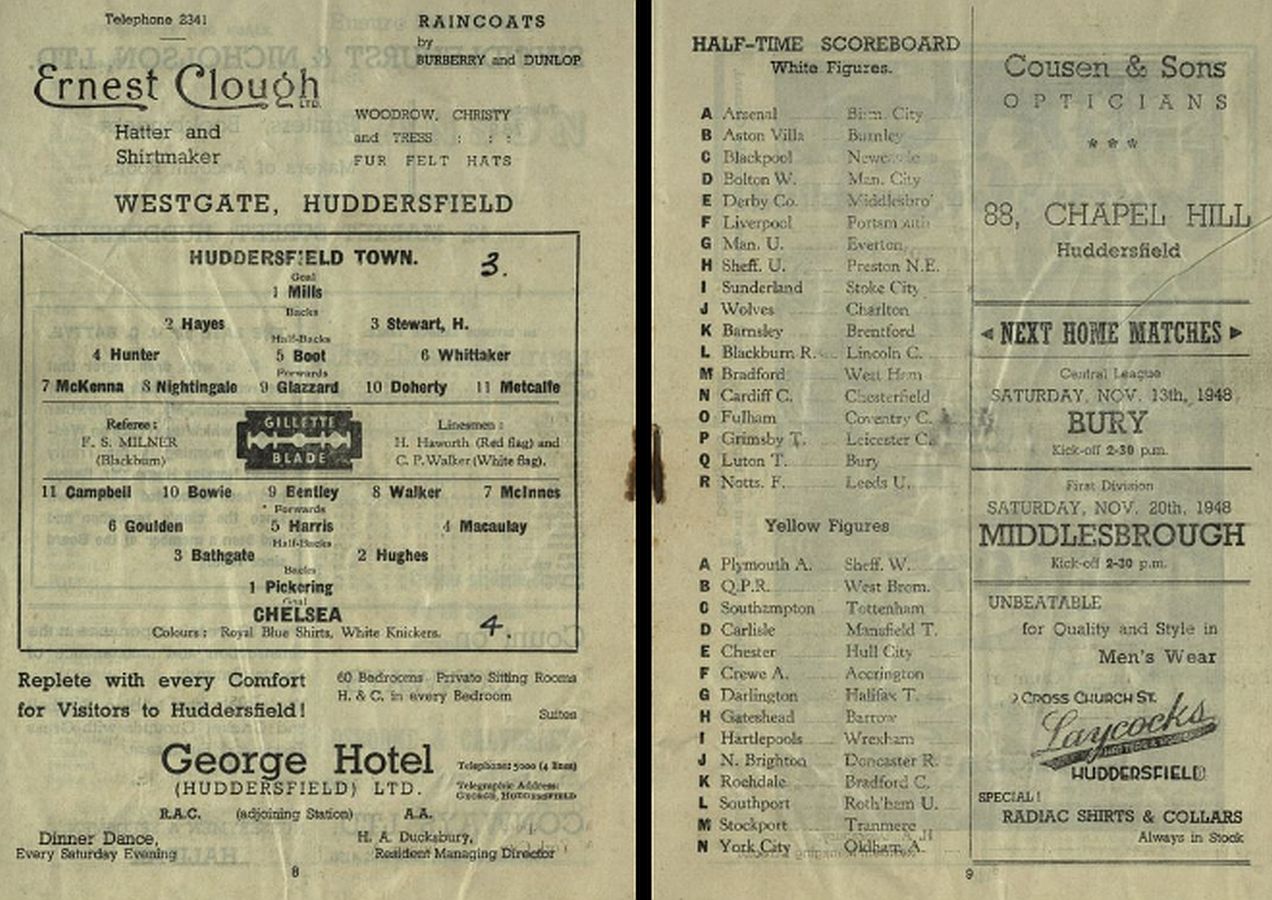 Telephone 2341
Ernest Clough LTD.
Hatter and
Shirtmaker
RAINCOATS
by
BURBERRY and DUNLOP
WOODROW, CHRISTY
and TRESS : : :
FUR FELT HATS
WESTGATE, HUDDERSFIELD
HUDDERSFIELD TOWN. 3.
Goal
1 Mills
Backs
2 Hayes 3 Stewart, H.
Half-Backs
4 Hunter 5 Boot 6 Whittaker
Forwards
7 McKenna 8 Nightingale 9 Glazzard 10 Doherty 11 Metcalfe
Referee :
F. S. MILNER
(Blackburn)
GILLETTE
BLADE
Linesmen :
H. Haworth (Red flag) and
C. P. Walker (White flag).
11 Campbell 10 Bowie 9 Bentley 8 Walker 7 McInnes
Forwards
6 Goulden 5 Harris 4 Macaulay
Half-Backs
3 Bathgate 2 Hughes
Backs
1 Pickering
Goal
CHELSEA
Colours : Royal Blue Shirts, White Knickers. 4.
Replete with every Comfort
for Visitors to Huddersfield!
60 Bedrooms Private Sitting Rooms
H. & C. in every Bedroom
Suites
George Hotel
(HUDDERSFIELD) LTD.
Telephone: 5000 (4 lines)
Telegraphic Address:
GEORGE, HUDDERSFIELD
R.A.C. (adjoining Station) A.A.
Dinner Dance,
Every Saturday Evening
H. A. Ducksbury,
Resident Managing Director
8
HALF-TIME SCOREBOARD
White Figures.
A Arsenal Birm. City
B Aston Villa Burnley
C Blackpool Newcastle
D Bolton W. Man. City
E Derby Co. Middlesbro'
F Liverpool Portsmouth
G Man. U. Everton
H Sheff. U. Preston N.E.
I Sunderland Stoke City
J Wolves Charlton
K Barnsley Brentford
L Blackburn R. Lincoln C.
M Bradford West Ham
N Cardiff C. Chesterfield
O Fulham Coventry C.
P Grimsby T. Leicester C.
Q Luton T. Bury
R Notts. F. Leeds U.
Yellow Figures
A Plymouth A. Sheff. W.
B Q.P.R. West Brom.
C Southampton Tottenham
D Carlisle Mansfield T.
E Chester Hull City
F Crewe A. Accrington
G Darlington Halifax T.
H Gateshead Barrow
I Hartlepools Wrexham
J N. Brighton Doncaster R.
K Rochdale Bradford C.
L Southport Roth'ham U.
M Stockport Tranmere
N York City Oldham A.
9
Cousen & Sons
OPTICIANS
* * *
88, CHAPEL HILL
Huddersfield
NEXT HOME MATCHES
Central League
SATURDAY, NOV. 13th, 1948
BURY
Kick-off 2-30 p.m.
First Division
SATURDAY, NOV. 20th, 1948
MIDDLESBROUGH
Kick-off 2-30 p.m.
UNBEATABLE
for Quality and Style in
Men's Wear
CROSS CHURCH ST.
Laycocks
HUDDERSFIELD
SPECIAL!
RADIAC SHIRTS & COLLARS
Always in Stock